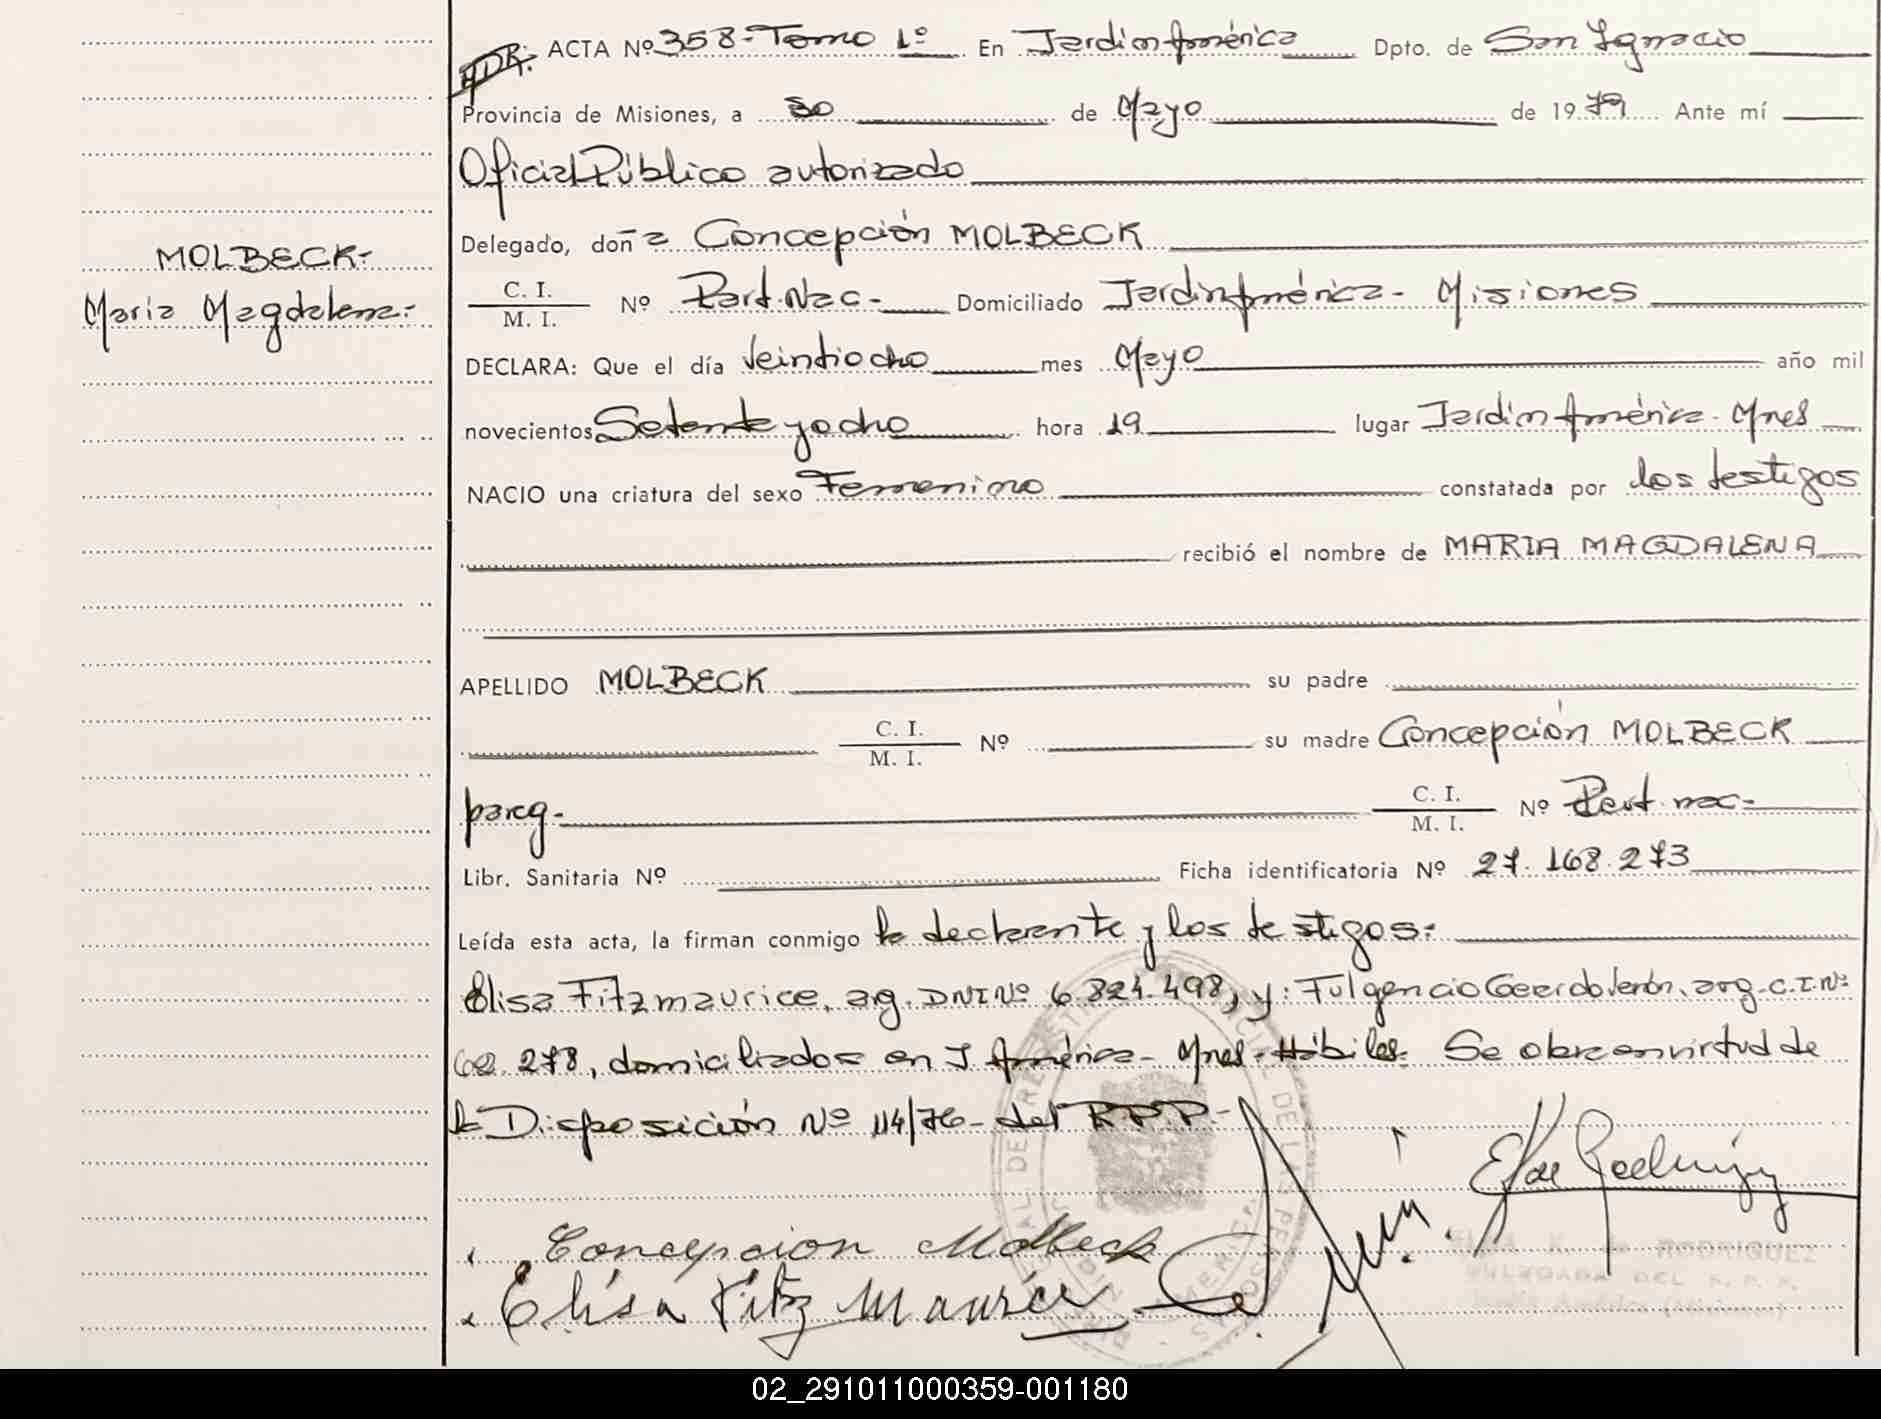 ACTA Nº 358- Tomo 1º En Jardín América Dpto. de San Ignacio
Provincia de Misiones, a 30 de Mayo de 1979 Ante mí
Oficial Público autorizado
MOLBECK-
María Magdalena-
Delegado, doña Concepción MOLBECK
C. I.
M. I.
Nº Part. Nac- Domiciliado Jardín América- Misiones
DECLARA: Que el día veintiocho mes Mayo año mil
novecientos Setenta y ocho hora 19 lugar Jardín América- Mnes
NACIO una criatura del sexo Femenino constatada por los testigos
recibió el nombre de MARIA MAGDALENA
APELLIDO MOLBECK su padre
C. I.
M. I.
Nº su madre Concepción MOLBECK
parag-
C. I.
M. I.
Nº Part. nac-
Libr. Sanitaria Nº Ficha identificatoria Nº 27.168.273
Leída esta acta, la firman conmigo la declarante y los testigos:
Elisa Fitzmaurice, arg. DNI Nº 6.824.498, y: Fulgencio Verón, arg. C.I. Nº
62.278, domiciliados en J. América- Mnes- Hábiles- Se obra en virtud de
la Disposición Nº 114/76- del R.P.P-
Concepcion Molbeck
Elisa Fitz Maurice
de RODRIGUEZ
02_291011000359-001180